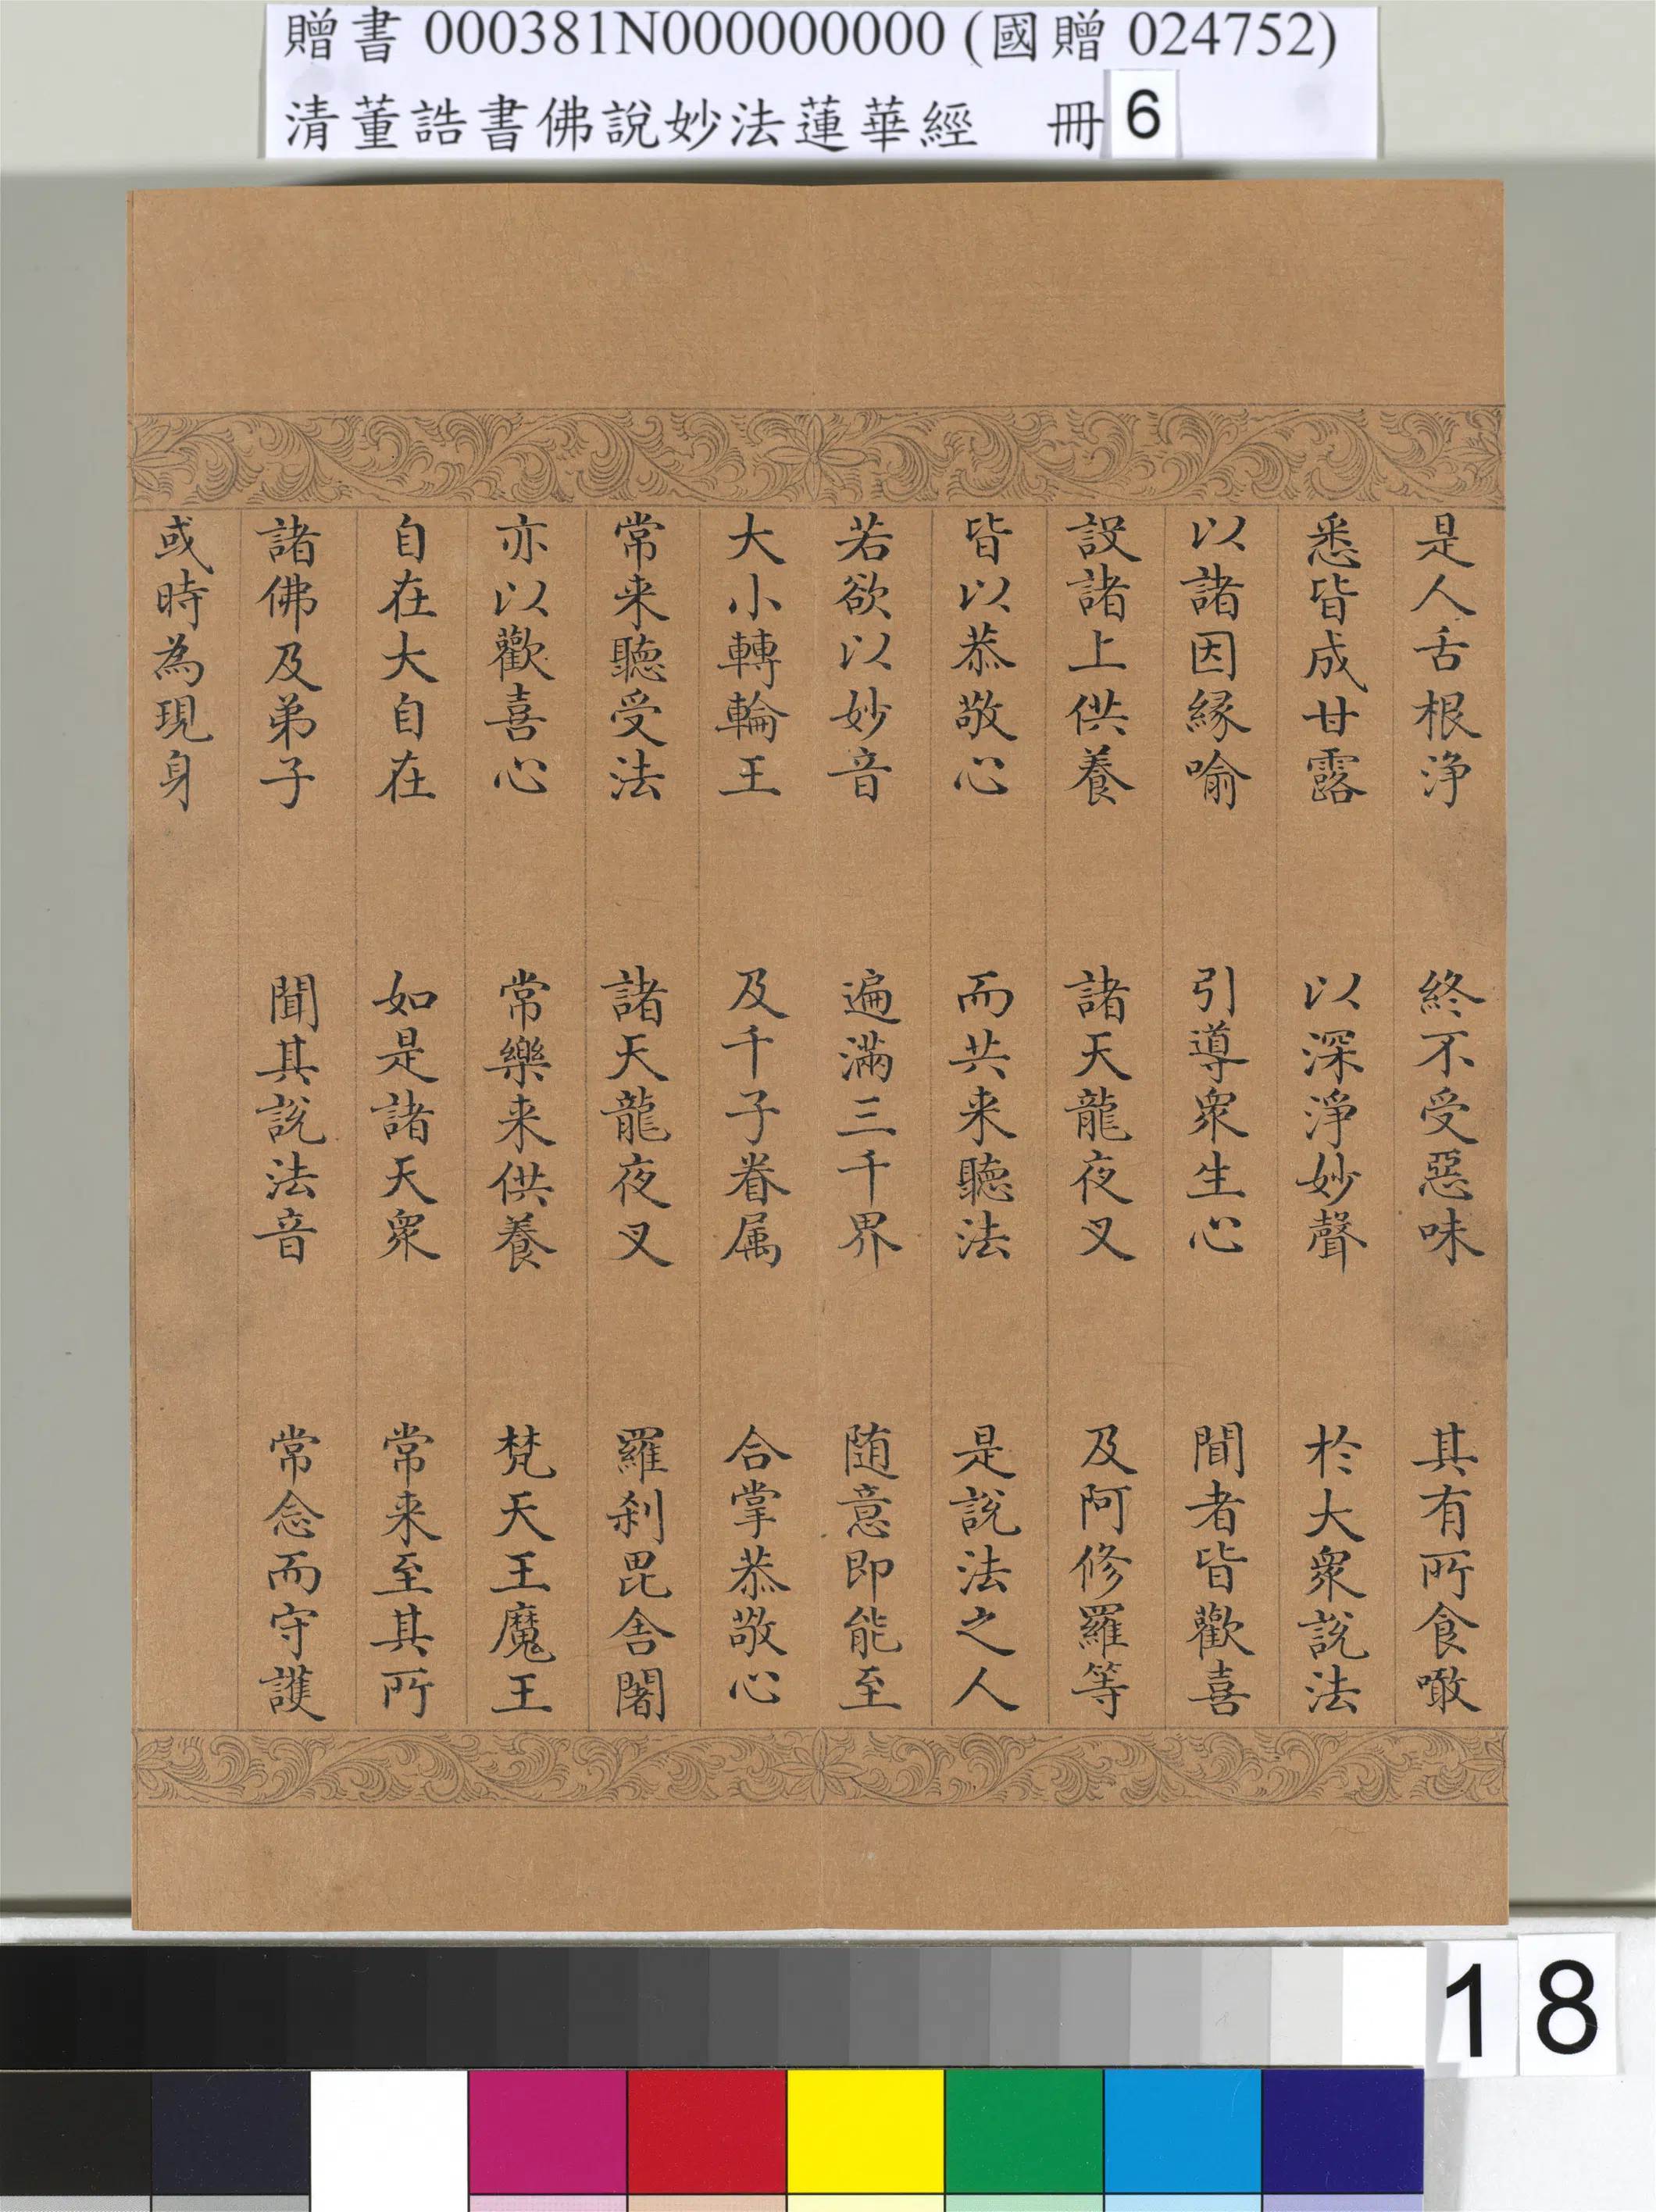 贈書 000381N000000000 (國贈 024752)
清董誥書佛說妙法蓮華經 冊 6
是人舌根淨 終不受惡味 其有所食噉
悉皆成甘露 以深淨妙聲 於大衆說法
以諸因縁喻 引導衆生心 聞者皆歡喜
設諸上供養 諸天龍夜叉 及阿修羅等
皆以恭敬心 而共来聽法 是說法之人
若欲以妙音 遍滿三千界 随意即能至
大小轉輪王 及千子眷属 合掌恭敬心
常来聽受法 諸天龍夜叉 羅刹毘舎闍
亦以歡喜心 常樂来供養 梵天王魔王
自在大自在 如是諸天衆 常来至其所
諸佛及弟子 聞其說法音 常念而守護
或時為現身
18